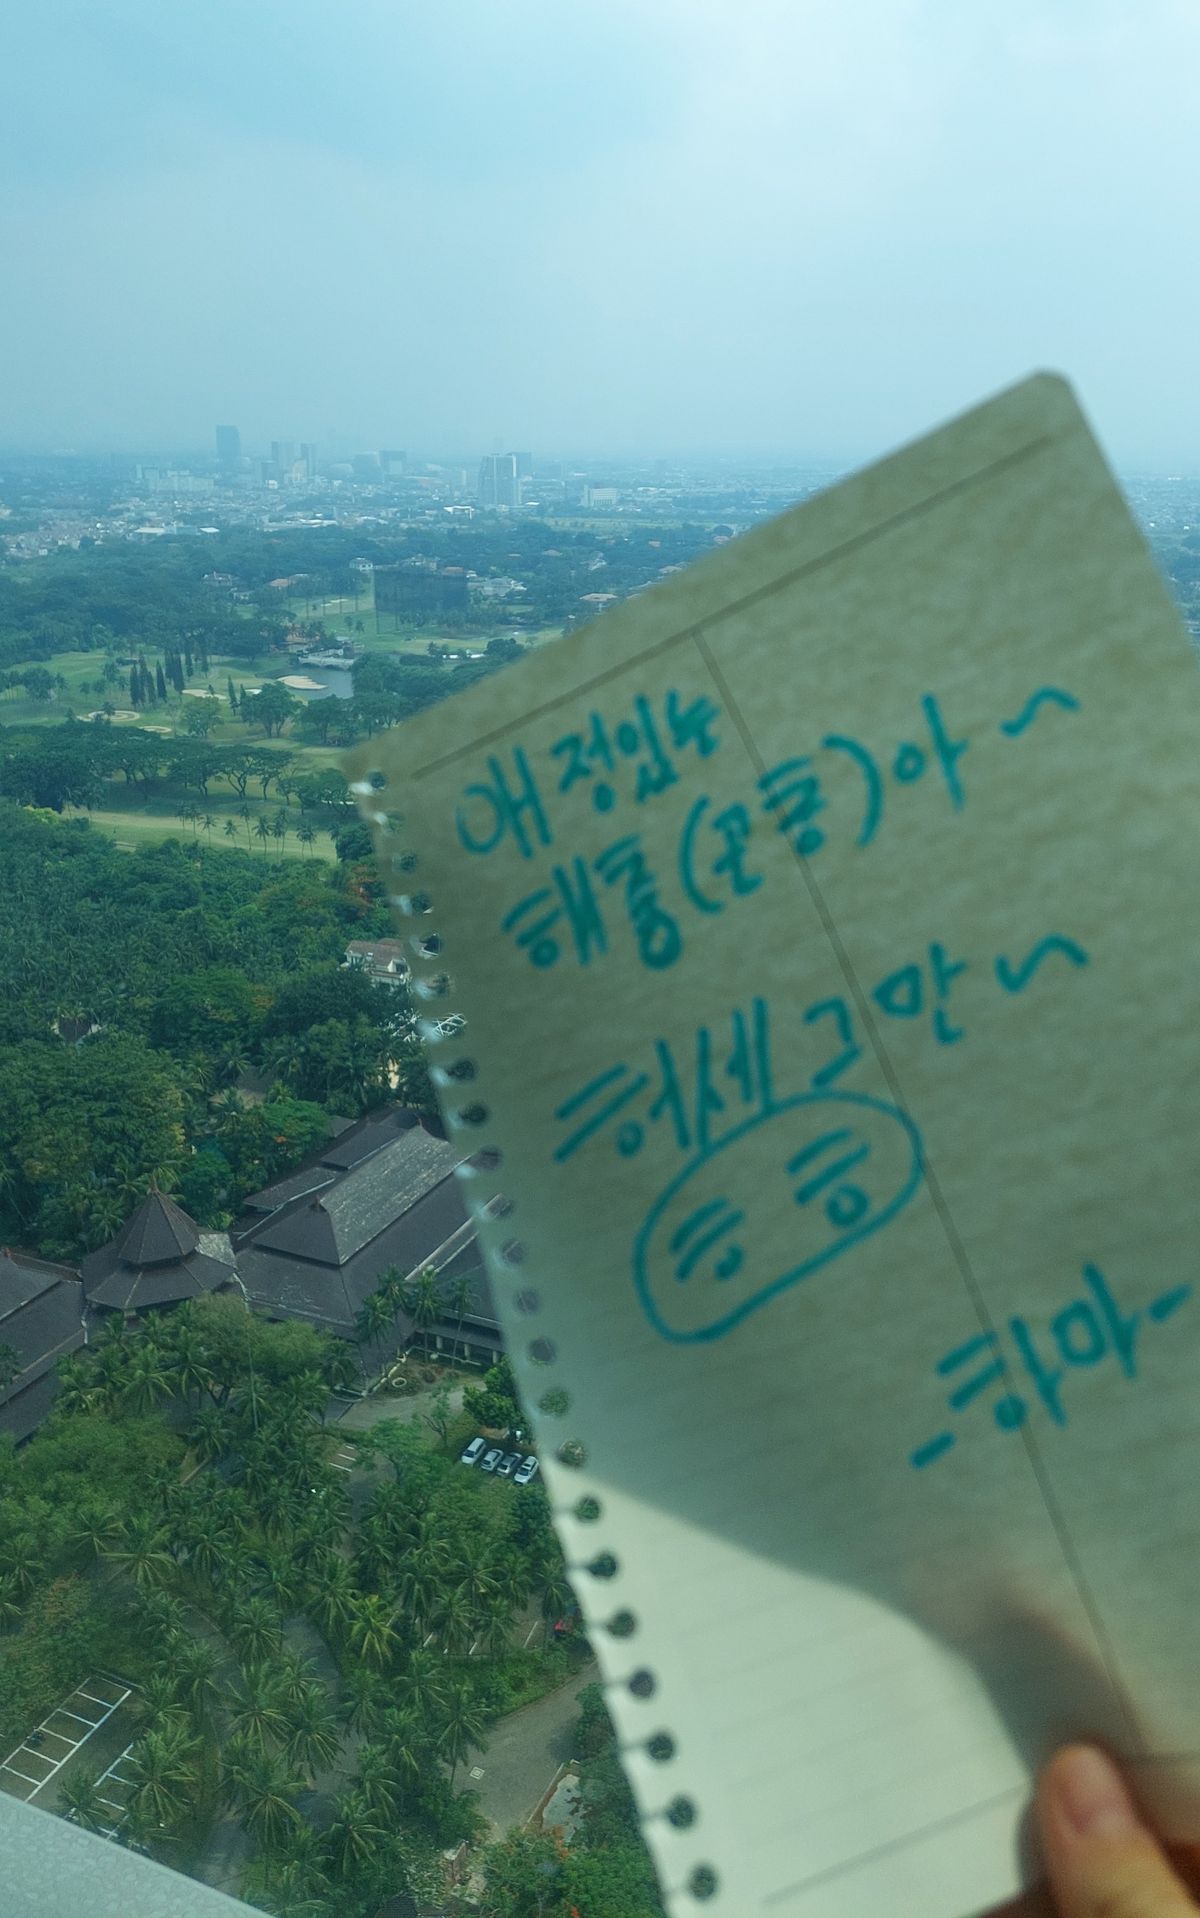 애정있는
해홍(꼰홍)아~
허세그만~
ㅎㅎ
-하마-